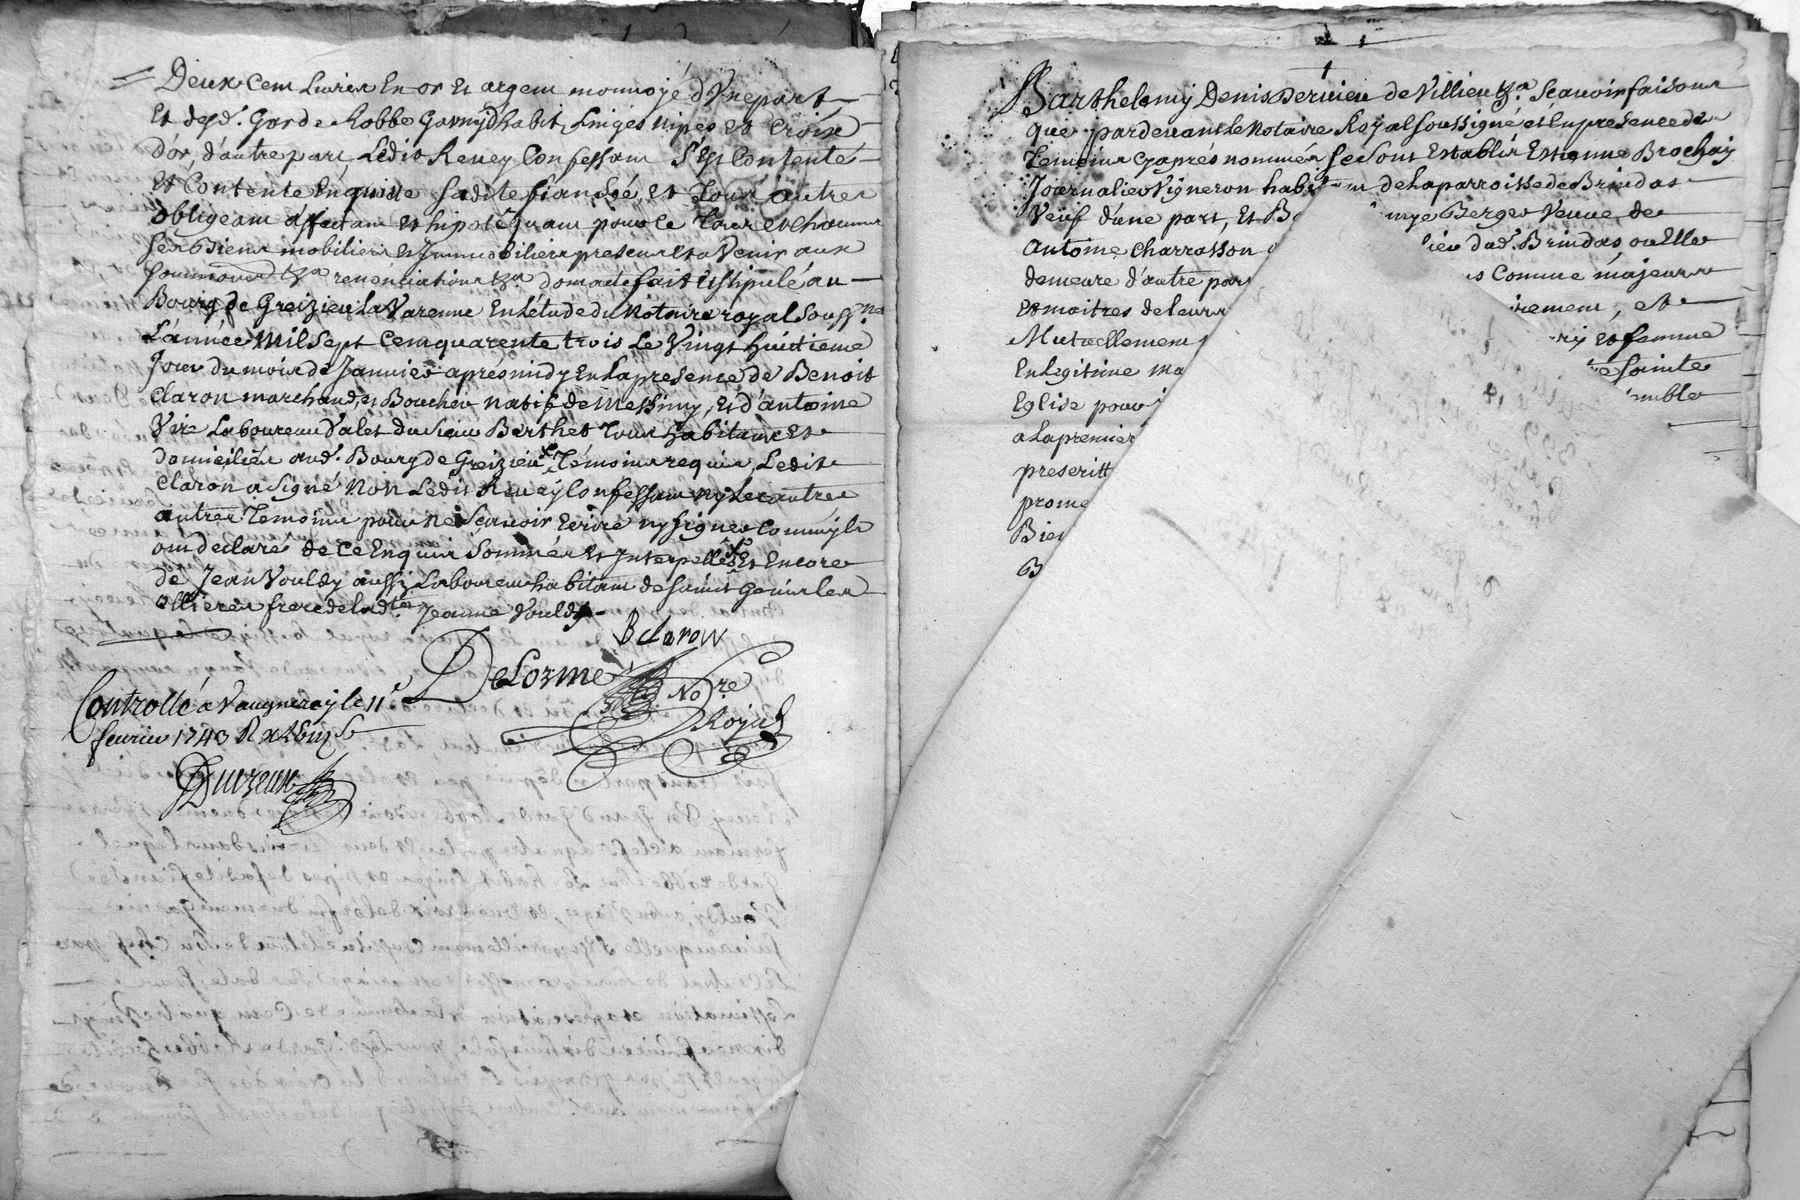 Deux Cent Livres En or Et argent monnoyé d'Vne part
Et desd. Garde Robbe Garny d'habit, Linges nipes et Croix
D'or, d'autre part, Ledit Revey Confessant S'est Contenté
Et Contente Enquitte sadite fiancée, et Tous autres
obligeant affectant et hipotequant pour ce Tous et Chacuns
ses Biens mobiliers et Immobiliers presents et a Venir aux
renonciations &a dont acte fait et stipulé au
Bourg de Greizieu La Varenne En L'étude du Notaire royal Souss.né
L'année Mil Sept Cent quarente trois Le Vingt Huitieme
Jour du mois de Janvier aprés midy En La presence de Benoit
Claron marchand, et Boucher natif de Messimy, et d'antoine
Vire Laboureur Valet du sieur Berthet Tous habitans Et
Domiciliés aud. Bourg de Greizieu Témoins requis, Ledit
Claron a signé Non Ledit Revey Confessant ny Les autres
autres Temoins pour ne Scavoir Ecrire ny signer Comm'ils
ont declaré de Ce Enquis Sommés et Interpellés Et Encore
de Jean Vouldy aussy Laboureur habitant de Saint Genis les
ollieres frere de lad.te Jeanne Vouldy
B claron
DeLorme No.re
Royal
Controllé a Vaugneray le 11e
fevrier 1743 R
Duvzeux
Barthelemy Denis Dervieu de Villieu &a. Scavoir faisons
que pardevant Le Notaire Royal soussigné et En presence des
Temoins cy aprés nommés se sont Establis Estienne Brochay
Journalier Vigneron habitant de La parroisse de Brindas
Veuf d'une part, Et B mye Berger Veuve de
Antoine Charrasson lieu dud. Brindas ou Elle
demeure d'autre part s Comme majeurs
Et maitres de Leurs irement, et
Mutuellement ry et femme
En Legitime ma te Sainte
Eglise pour semble
a La premier
prescritt
prome
Bien
B